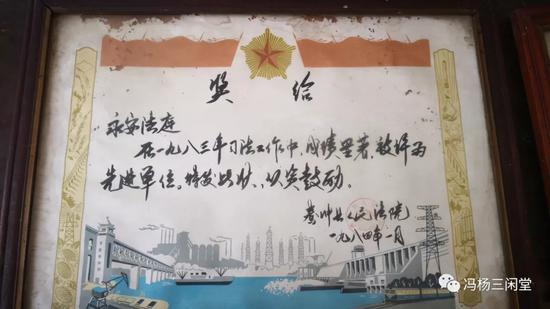 奖给
永安法庭
在一九八三年司法工作中,成绩显著,被评为
先进单位。特发此状,以资鼓励。
县人民法院
一九八四年 月
冯杨三闲堂